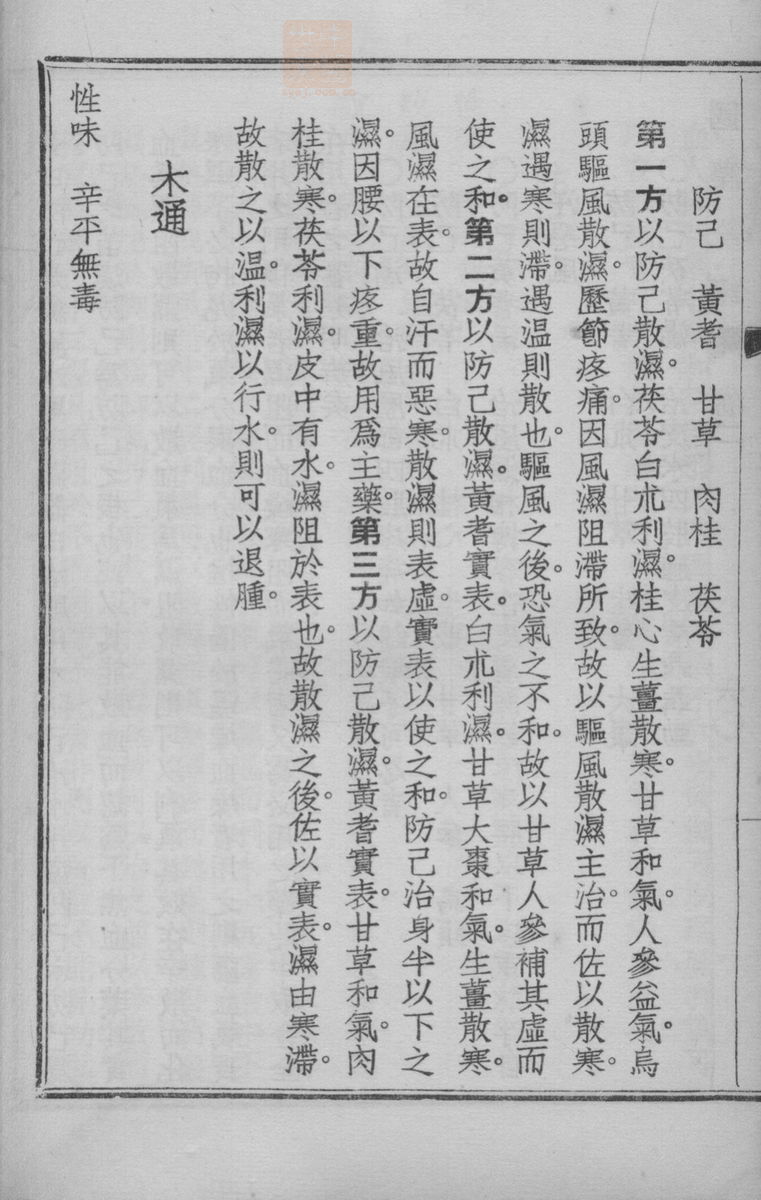 防己　黃耆　甘草　肉桂　茯苓
第一方以防己散濕。茯苓白朮利濕。桂心生薑散寒。甘草和氣。人參益氣。烏
頭驅風散濕。歷節疼痛。因風濕阻滯所致。故以驅風散濕主治。而佐以散寒。
濕遇寒則滯。遇温則散也。驅風之後。恐氣之不和。故以甘草人參補其虛而
使之和。第二方以防己散濕。黃耆實表。白朮利濕。甘草大棗和氣。生薑散寒。
風濕在表。故自汗而惡寒。散濕則表虛。實表以使之和。防己治身半以下之
濕。因腰以下疼重。故用爲主藥。第三方以防己散濕。黃耆實表。甘草和氣。肉
桂散寒。茯苓利濕。皮中有水。濕阻於表也。故散濕之後。佐以實表。濕由寒滯。
故散之以温。利濕以行水。則可以退腫。
木通
性味　辛平無毒